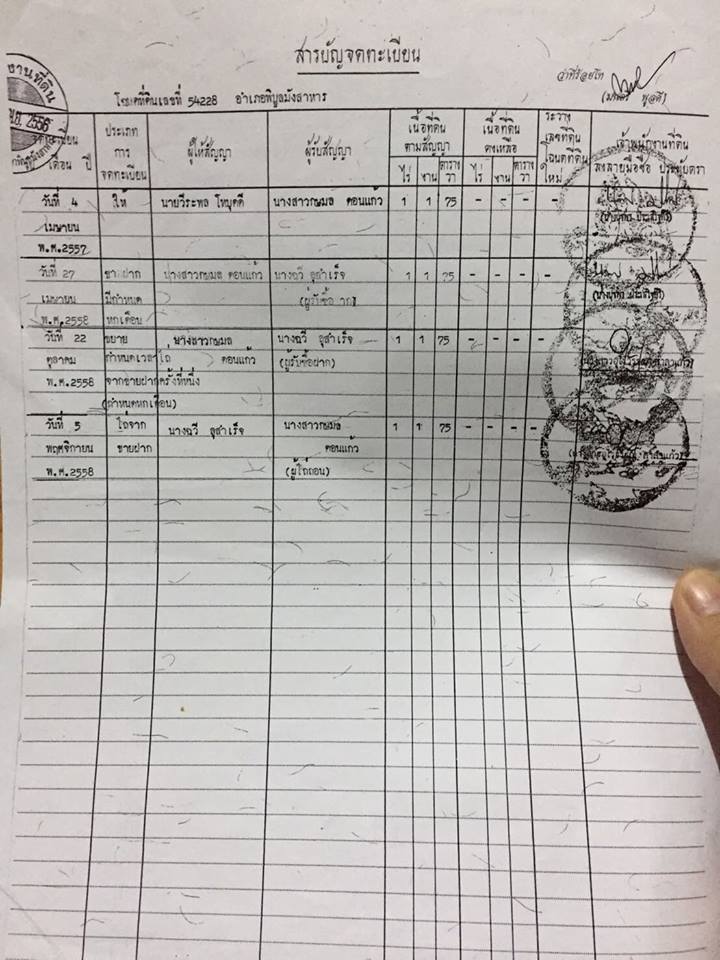 สารบัญจดทะเบียน
ว่าที่ร้อยโท
โฉนดที่ดินเลขที่ 54228 อำเภอพิบูลมังสาหาร
งานที่ดิน
2556
เดือน ปี
ประเภท
การ
จดทะเบียน
ผู้ให้สัญญา
ผู้รับสัญญา
เนื้อที่ดิน
ตามสัญญา
ไร่ งาน ตารางวา
เนื้อที่ดิน
คงเหลือ
ไร่ งาน ตารางวา
ระวาง
เลขที่ดิน
โฉนดที่ดิน
ใหม่
เจ้าพนักงานที่ดิน
ลงลายมือชื่อ ประทับตรา
วันที่ 4 ให้ นายวีระพล นางสาวกษมล ดอนแก้ว 1 1 75 - - - -
เมษายน
พ.ศ.2557
วันที่ 27 ขายฝาก นางสาวกษมล ดอนแก้ว นางฉวี 1 1 75 - - - -
เมษายน มีกำหนด
พ.ศ.2558 หกเดือน
วันที่ 22 ขยาย นางสาวกษมล นางฉวี 1 1 75 - - - -
ตุลาคม กำหนดเวลาไถ่ ดอนแก้ว (ผู้รับซื้อฝาก)
พ.ศ.2558 จากขายฝากครั้งที่หนึ่ง
(กำหนดหกเดือน)
วันที่ 5 ไถ่จาก นางฉวี นางสาวกษมล 1 1 75 - - - -
พฤศจิกายน ขายฝาก ดอนแก้ว
พ.ศ.2558 (ผู้ไถ่ถอน)